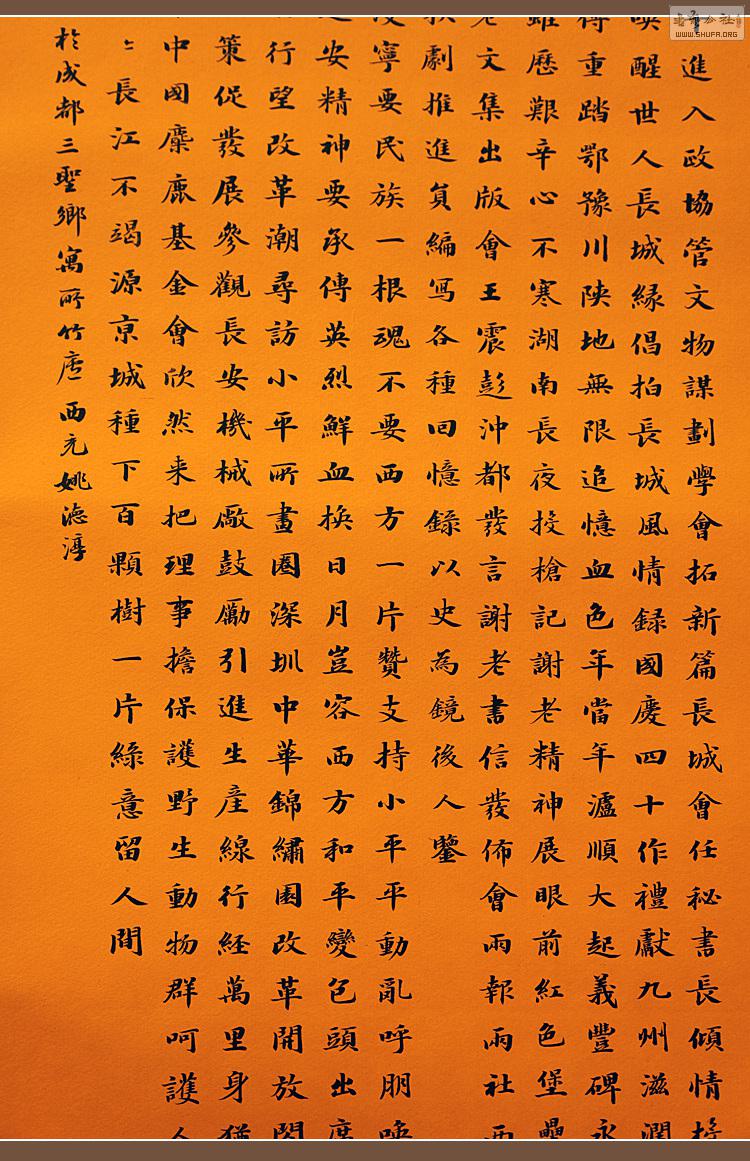 進入政協管文物謀劃學會拓新篇長城會任秘書長傾情
醒世人長城緣倡拍長城風情録國慶四十作禮獻九州滋潤
重踏鄂豫川陝地無限追憶血色年當年瀘順大起義豐碑永
雖歷艱辛心不寒湖南長夜投槍記謝老精神展眼前紅色堡壘
老文集出版會王震彭沖都發言謝老書信發佈會兩報兩社
劇推進負編写各種回憶錄以史為鏡後人鑒
寧要民族一根魂不要西方一片贊支持小平平動亂呼朋喚
安精神要承傳英烈鮮血换日月豈容西方和平變包頭出席
行望改革潮尋訪小平所畫圈深圳中華錦繡園改革開放
策促發展參觀長安機械廠鼓勵引進生産線行経萬里身猶
中國麋鹿基金會欣然来把理事擔保護野生動物群呵護人
長江不竭源京城種下百顆樹一片綠意留人間
於成都三聖鄉寓所竹廬西充姚德淳
書法公社
WWW.SHUFA.ORG